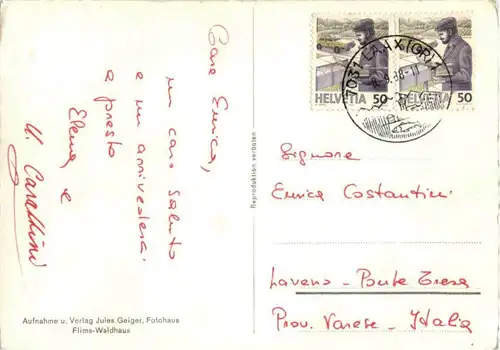 Cara Enrica,
un caro saluto
e un arrivederci
a presto
Elena e
Aufnahme u. Verlag Jules Geiger, Fotohaus
Flims-Waldhaus
Reproduktion verboten
HELVETIA 50
HELVETIA 50
7031 LAAX (GR) 1
.9.88-11
Signora
Enrica Costantini
Laveno - Ponte Tresa
Prov. Varese - Italia